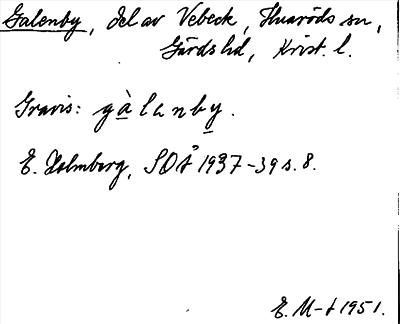 Galenby, del av Vebeck, Huaröds sn,
Gärds hd, Krist. l.
Gravis: gàlanby.
E. Holmberg, SOÅ 1937-39 s. 8.
E. M-t 1951.